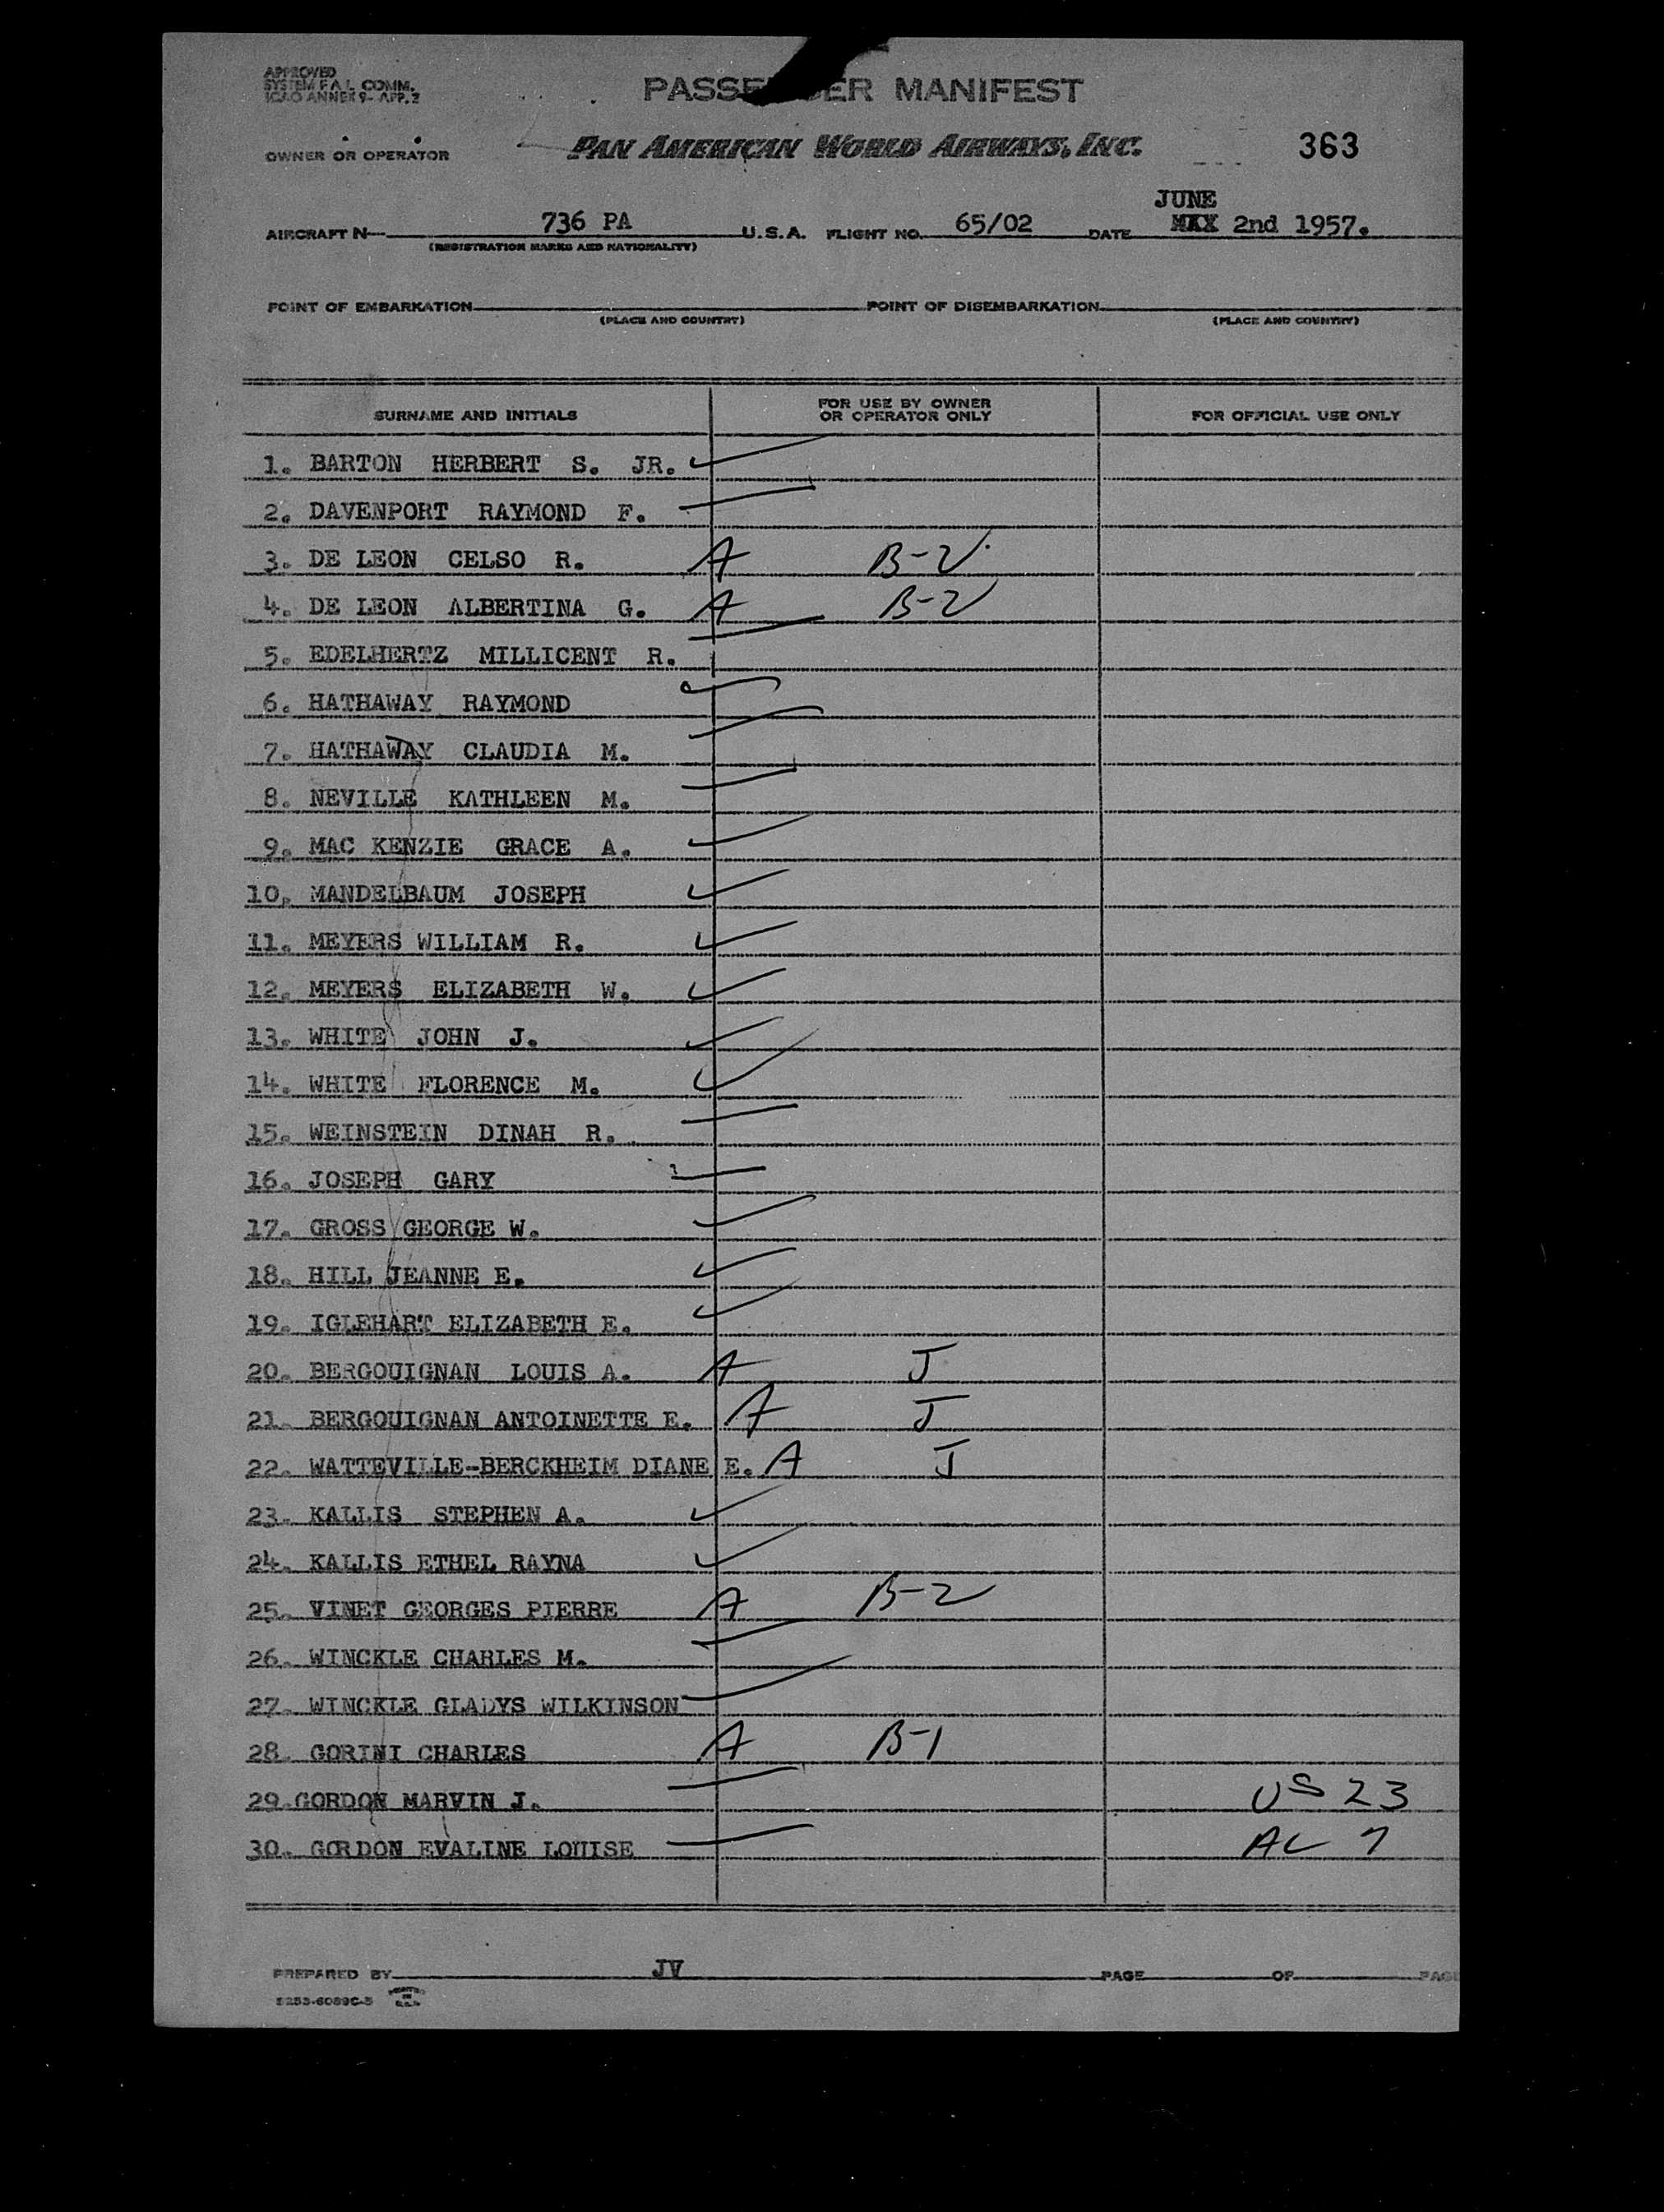 APPROVED
SYSTEM F.A.L. COMM.
ICAO ANNEX 9- APP. 2
PASSENGER MANIFEST
OWNER OR OPERATOR PAN AMERICAN WORLD AIRWAYS, INC. 363
JUNE
AIRCRAFT N— 736 PA U.S.A. FLIGHT NO. 65/02 DATE 2nd 1957.
(REGISTRATION MARKS AND NATIONALITY)
POINT OF EMBARKATION POINT OF DISEMBARKATION
(PLACE AND COUNTRY) (PLACE AND COUNTRY)
SURNAME AND INITIALS FOR USE BY OWNER OR OPERATOR ONLY FOR OFFICIAL USE ONLY
1. BARTON HERBERT S. JR.
2. DAVENPORT RAYMOND F.
3. DE LEON CELSO R. A B-2
4. DE LEON ALBERTINA G. A B-2
5. EDELHERTZ MILLICENT R.
6. HATHAWAY RAYMOND
7. HATHAWAY CLAUDIA M.
8. NEVILLE KATHLEEN M.
9. MAC KENZIE GRACE A.
10. MANDELBAUM JOSEPH
11. MEYERS WILLIAM R.
12. MEYERS ELIZABETH W.
13. WHITE JOHN J.
14. WHITE FLORENCE M.
15. WEINSTEIN DINAH R.
16. JOSEPH GARY
17. GROSS GEORGE W.
18. HILL JEANNE E.
19. IGLEHART ELIZABETH E.
20. BERGOUIGNAN LOUIS A. A J
21. BERGOUIGNAN ANTOINETTE E. A J
22. WATTEVILLE-BERCKHEIM DIANE E. A J
23. KALLIS STEPHEN A.
24. KALLIS ETHEL RAYNA
25. VINET GEORGES PIERRE A B-2
26. WINCKLE CHARLES M.
27. WINCKLE GLADYS WILKINSON
28. GORINI CHARLES A B-1
29. GORDON MARVIN J. US 23
30. GORDON EVALINE LOUISE AL 7
PREPARED BY JV PAGE OF PAG